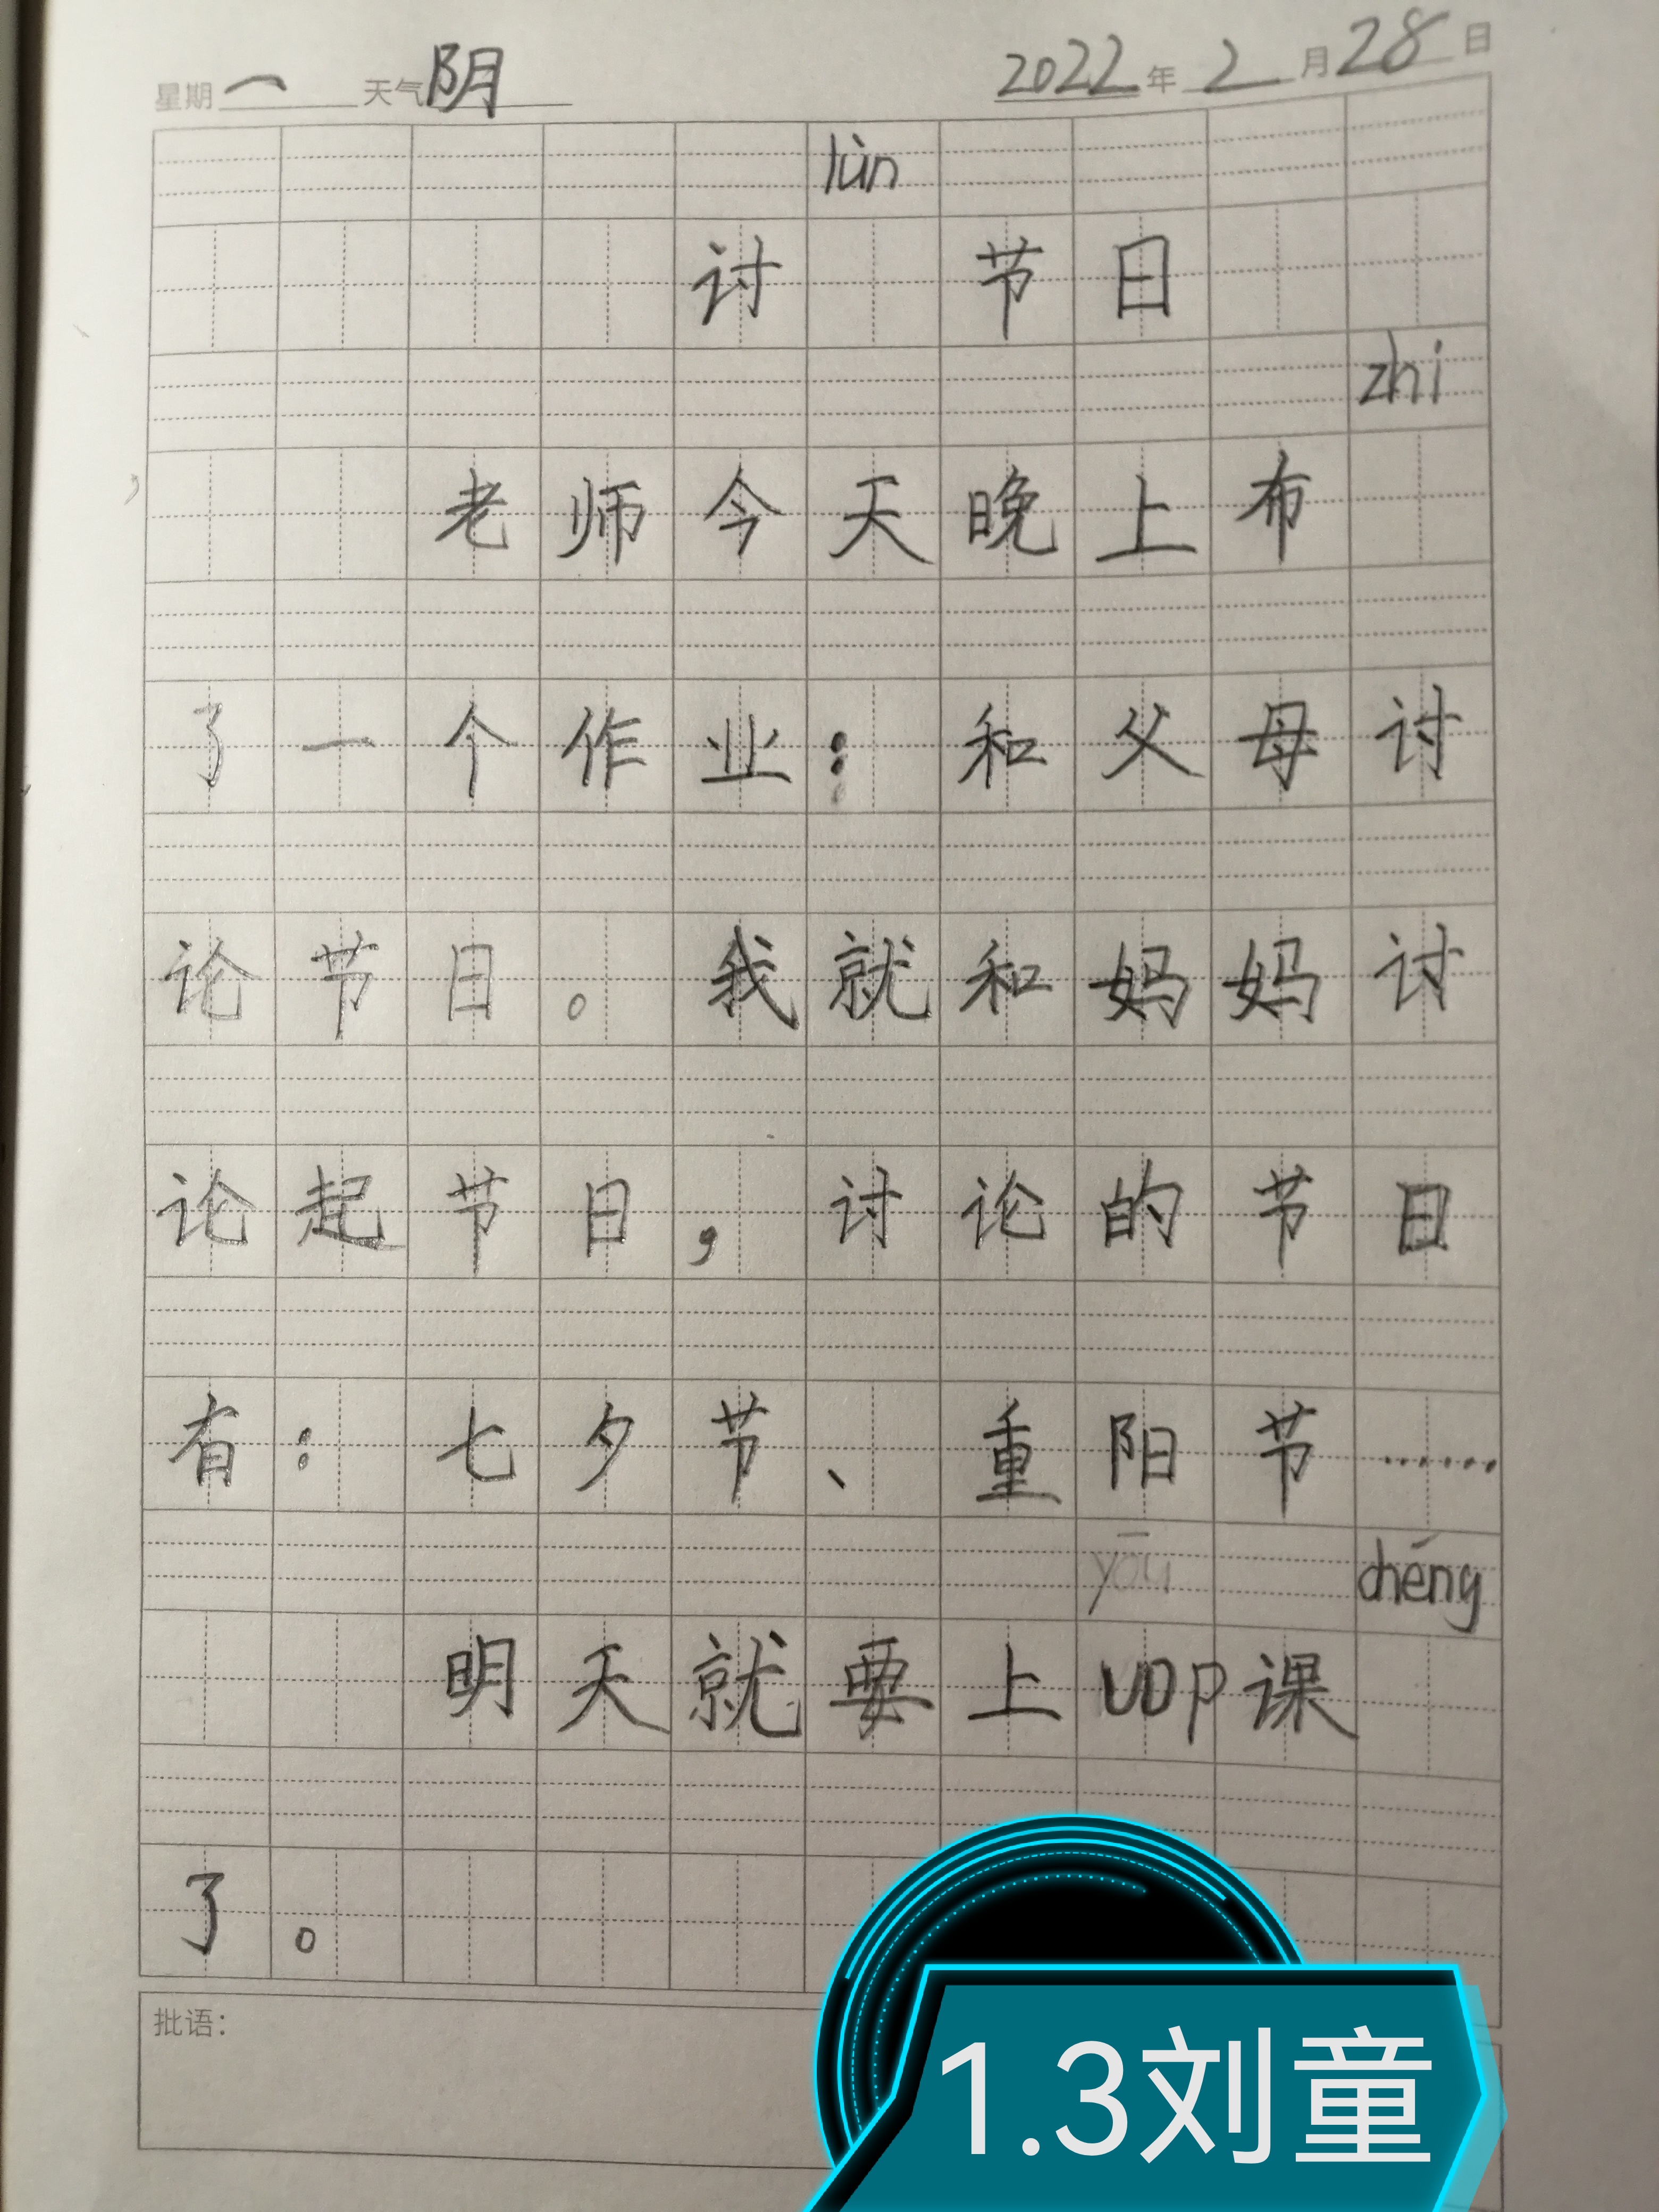 星期一 天气阴 2022年2月28日
lùn
讨 节日
zhi
老师今天晚上布
了一个作业：和父母讨
论节日。我就和妈妈讨
论起节日，讨论的节日
有：七夕节、重阳节……
yōu chéng
明天就要上UOP课
了。
批语：
1.3刘童